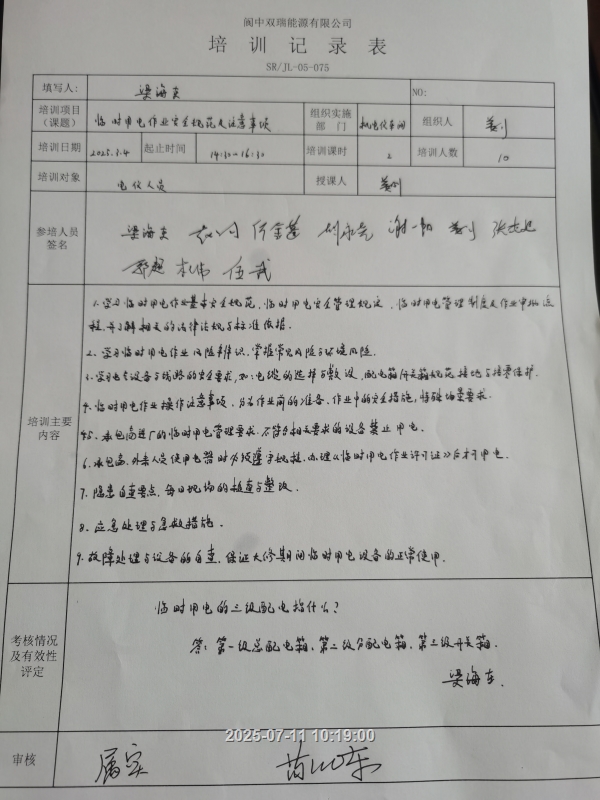 阆中双瑞能源有限公司
培训记录表
SR/JL-05-075
填写人: 梁海东 NO:
培训项目(课题) 临时用电作业安全规范及注意事项 组织实施部门 机电仪车间 组织人
培训日期 2025.7.4 起止时间 14:30-16:30 培训课时 2 培训人数 10
培训对象 电仪人员 授课人
参培人员签名 梁海东
培训主要内容
1.学习临时用电作业基本安全规范,临时用电安全管理规定,临时用电管理制度及作业审批流
程,并了解相关的法律法规与标准依据.
2.学习临时用电作业风险辨识,掌握常见风险与环境风险.
3.学习电气设备与线路的安全要求,如:电缆的选择与敷设,配电箱/开关箱规范接地与接零保护.
4.临时用电作业操作注意事项,分为作业前的准备、作业中的安全措施,特殊场景要求.
5.承包商进厂的临时用电管理要求,不符合相关要求的设备禁止用电.
6.承包商、外来人员使用电器时必须遵守规程,办理《临时用电作业许可证》后才可用电.
7.隐患自查要点,每日现场的检查与整改.
8.应急处理与急救措施.
9.故障处理与设备的自查,保证大修期间临时用电设备的正常使用.
考核情况及有效性评定
临时用电的三级配电指什么?
答:第一级总配电箱、第二级分配电箱、第三级开关箱.
梁海东.
2025-07-11 10:19:00
审核 属实